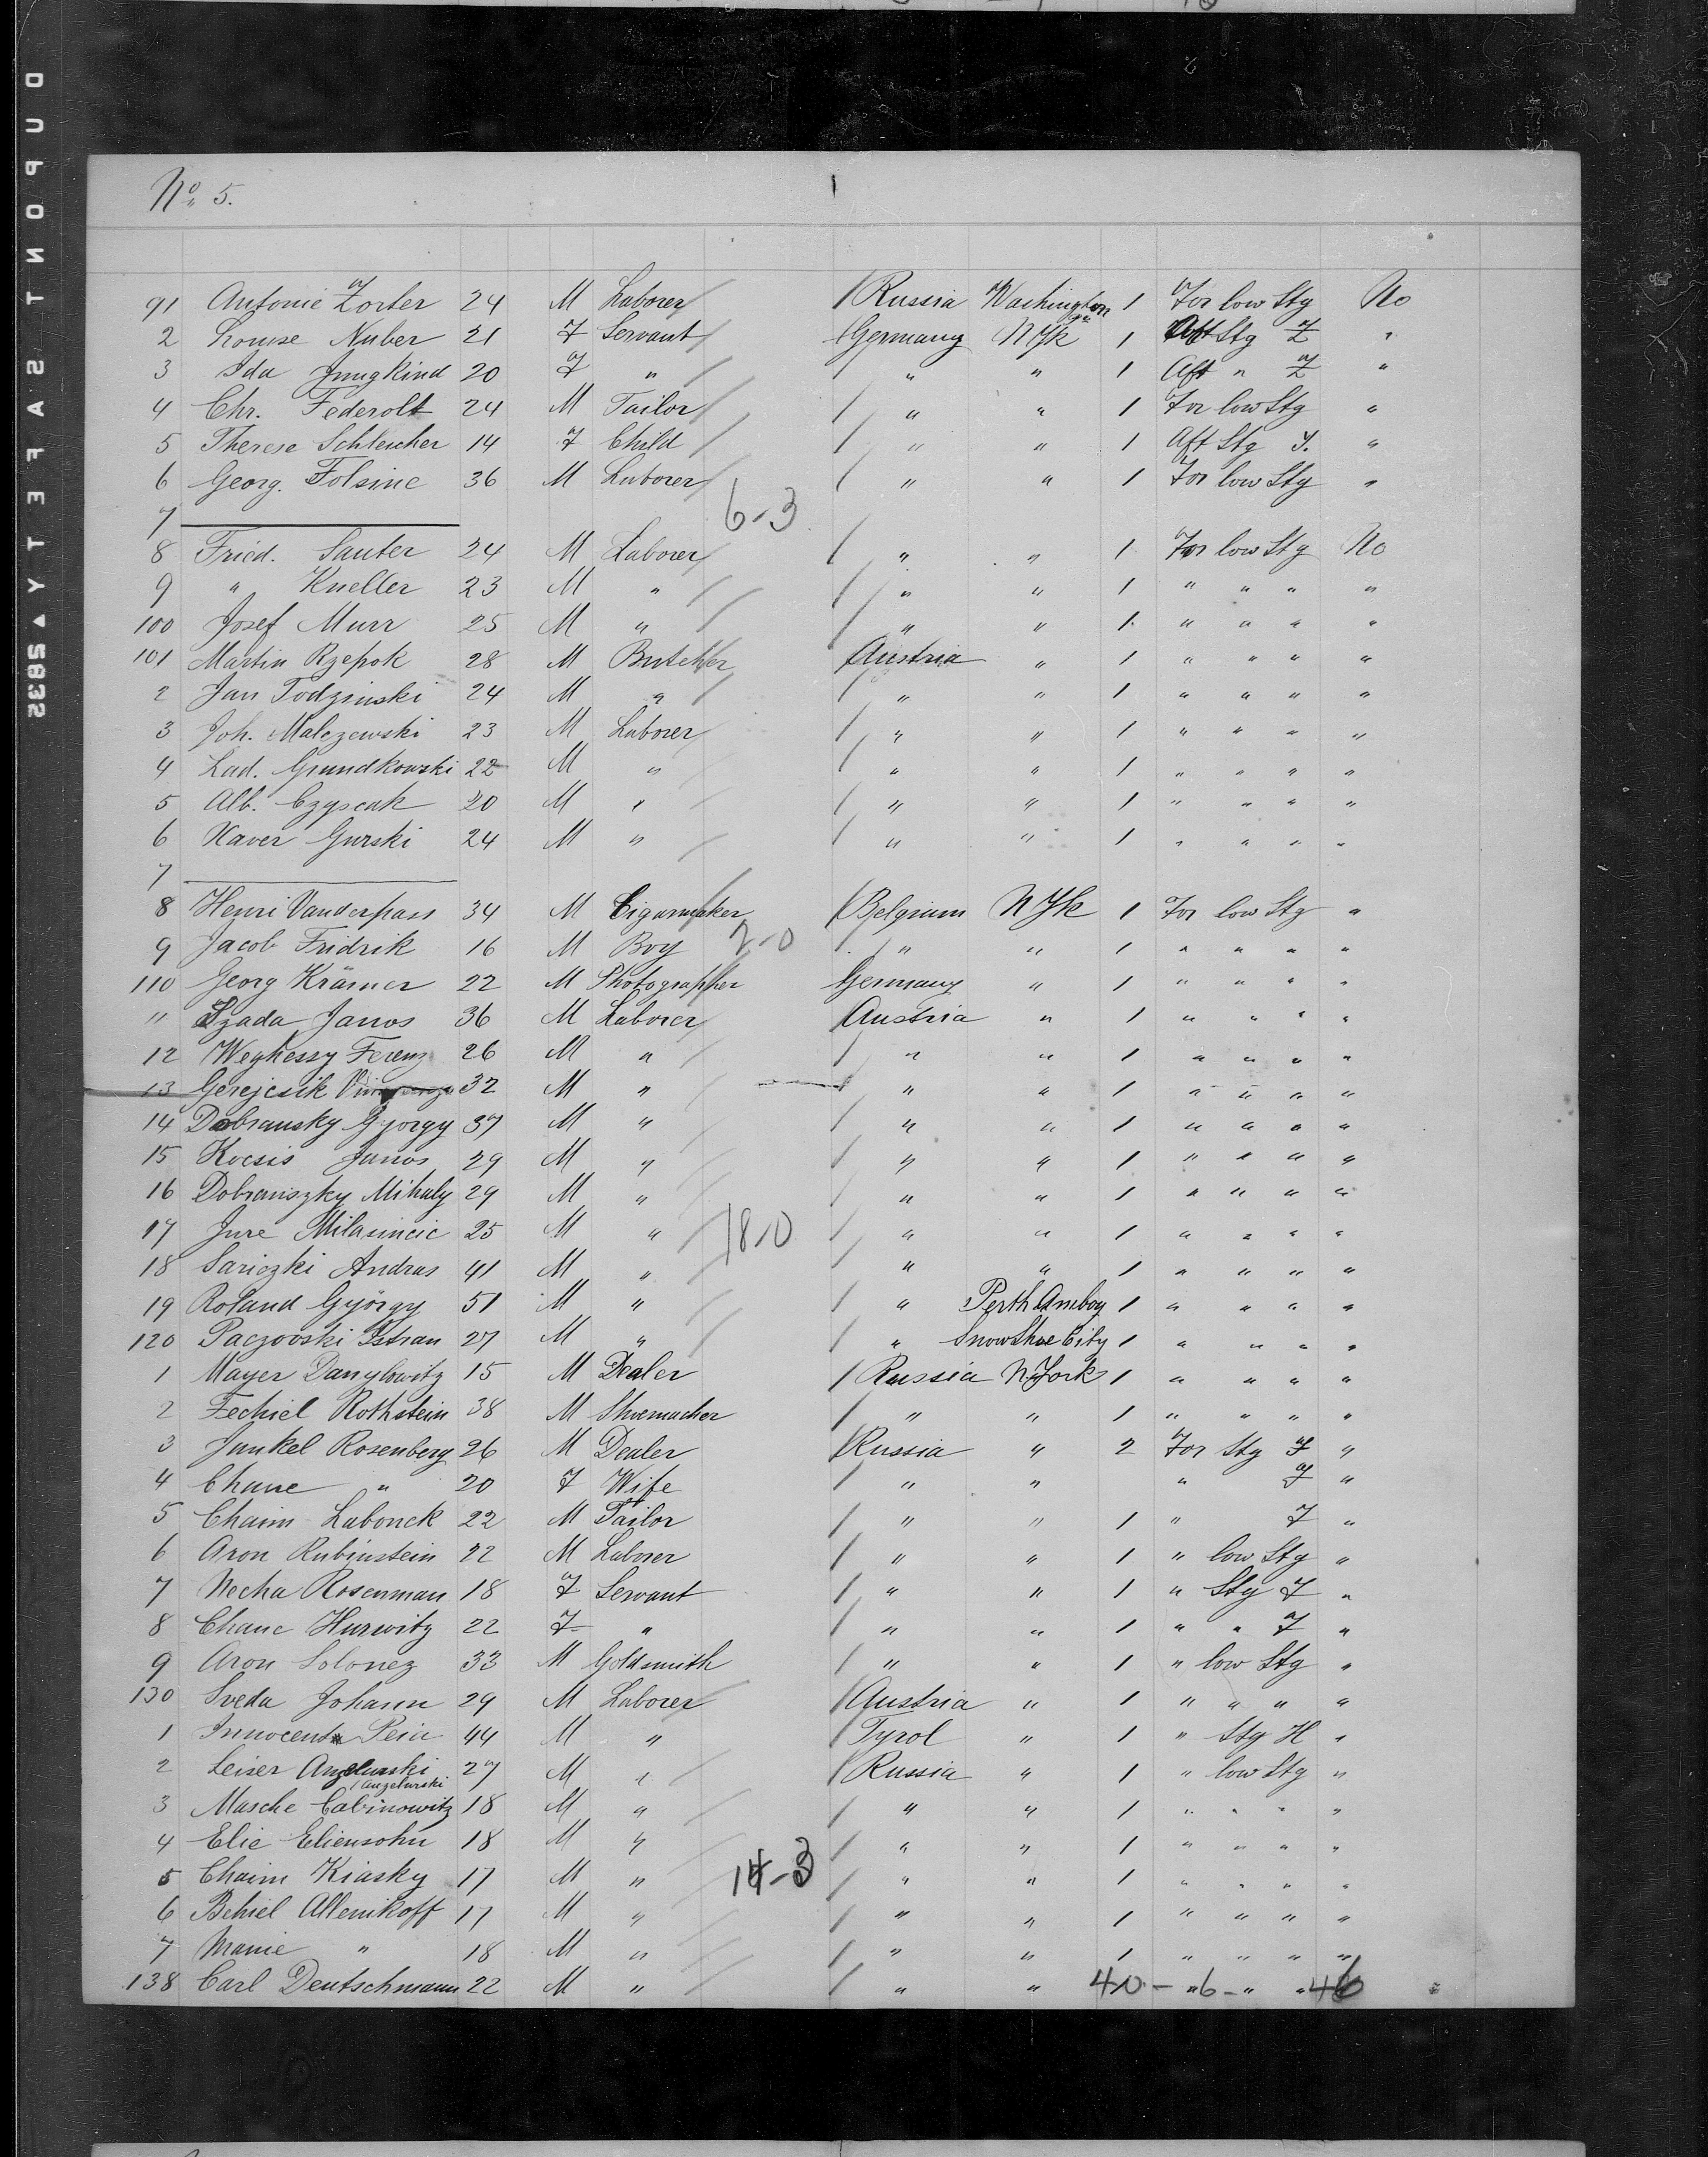 No. 5.
91 Antonie Zorter 24 M Laborer / Russia Washington 1 For low Stg No
2 Louise Nuber 21 F Servant / Germany N Yk 1 Aft Stg Z "
3 Ida Jungkind 20 F " / " " 1 Aft " Z "
4 Chr. Federolt 24 M Tailor / " " 1 For low Stg "
5 Therese Schleicher 14 F Child / " " 1 Aft Stg Y. "
6 Georg. Folsine 36 M Laborer / " " 1 For low Stg "
7 6-3
8 Fried. Sauter 24 M Laborer / " " 1 For low Stg No
9 " Kneller 23 M " / " " 1 " " " "
100 Josef Murr 25 M " / " " 1 " " " "
101 Martin Rzepok 28 M Butcher / Austria " 1 " " " "
2 Jan Todzinski 24 M " / " " 1 " " " "
3 Joh. Malczewski 23 M Laborer / " " 1 " " " "
4 Lad. Grundkowski 22 M " / " " 1 " " " "
5 Alb. Czyscak 20 M " / " " 1 " " " "
6 Xaver Gurski 24 M " / " " 1 " " " "
7
8 Henri Vanderpass 34 M Cigarmaker / Belgium N Yk 1 For low Stg "
9 Jacob Fridrik 16 M Boy 2-0 / " " 1 " " " "
110 Georg Krämer 22 M Photographer Germany " 1 " " " "
11 Szada Janos 36 M Laborer / Austria " 1 " " " "
12 Weghessy Ferenz 26 M " / " " 1 " " " "
13 Gerejcsik 32 M " / " " 1 " " " "
14 Dobransky György 37 M " / " " 1 " " " "
15 Kocsis Janos 29 M " / " " 1 " " " "
16 Dobranszky Mihaly 29 M " / " " 1 " " " "
17 Jure Milasincic 25 M " 18-0 / " " 1 " " " "
18 Sariczki Andras 41 M " / " " 1 " " " "
19 Roland György 51 M " / " Perth Amboy 1 " " " "
120 Paczovski Istvan 27 M " / " Snow Shoe City 1 " " " "
1 Mayer Danylowitz 15 M Dealer / Russia N. York 1 " " " "
2 Fechiel Rothstein 38 M Shoemacher / " " 1 " " " "
3 Jankel Rosenberg 26 M Dealer / Russia " 2 For Stg F "
4 Chane " 20 F Wife / " " " F "
5 Chaim Labonck 22 M Tailor / " " 1 " F "
6 Aron Rubinstein 22 M Laborer / " " 1 " low Stg "
7 Necha Rosenman 18 F Servant / " " 1 " Stg F "
8 Chane Hurwitz 22 F " / " " 1 " " F "
9 Aron Solonez 33 M Goldsmith / " " 1 " low Stg "
130 Sveda Johann 29 M Laborer / Austria " 1 " " " "
1 Innocent Peia 44 M " / Tyrol " 1 " Stg H "
2 Leiser Angelurski 27 M " / Russia " 1 " low Stg "
/ Angelurski
3 Masche Cabinowitz 18 M " / " " 1 " " " "
4 Elie Eliensohn 18 M " / " " 1 " " " "
5 Chaim Kiasky 17 M " 14-3 / " " 1 " " " "
6 Behiel Allenikoff 17 M " / " " 1 " " " "
7 Manie " 18 M " / " " 1 " " " "
138 Carl Deutschmann 22 M " / " " 40 - " 6 - " " 46
DUPONT SAFETY ▲ 5852